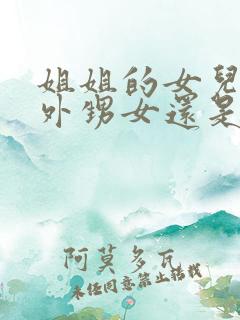 姐姐的女兒
外甥女還是
阿莫多瓦
未經同意禁止轉載